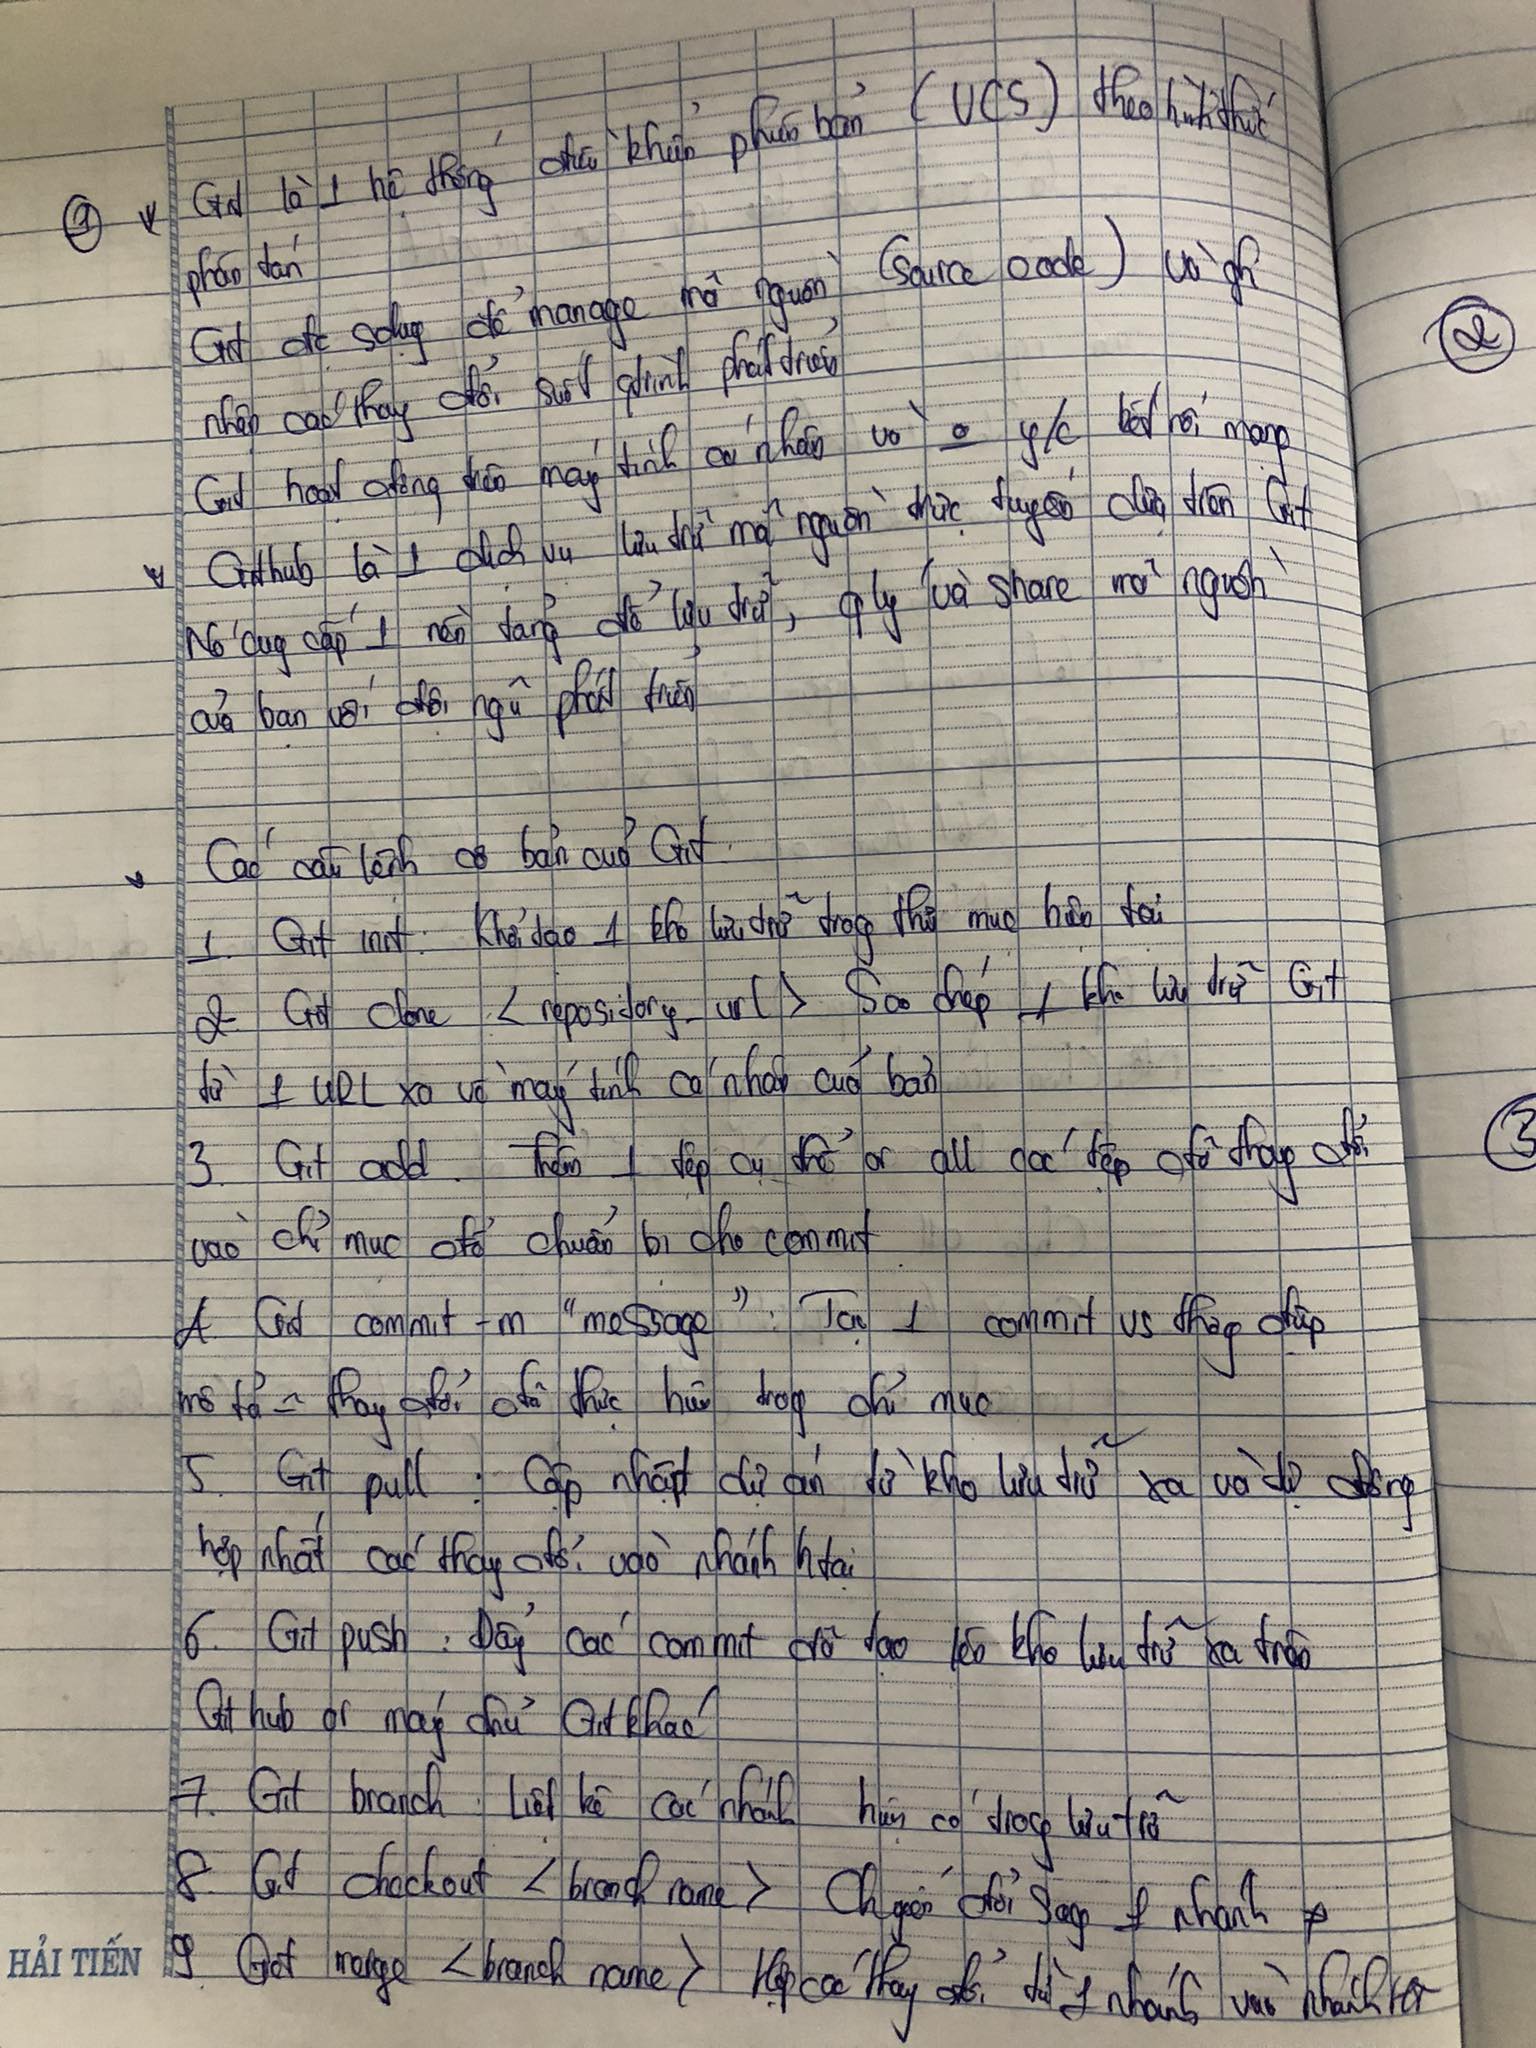 ① Git là 1 hệ thống điều khiển phiên bản (VCS) theo hình thức
phân tán
Git đc sdụg để manage mã nguồn (source code) và ghi
nhận các thay đổi suốt qtrình phát triển
Git hoạt động trên máy tính cá nhân và o y/c kết nối mạng
Github là 1 dịch vụ lưu trữ mã nguồn trực tuyến dựa trên Git
Nó cug cấp 1 nền tảng để lưu trữ, qlý và share mã nguồn
của bạn với đội ngũ phát triển
②
Các câu lệnh cơ bản của Git
1. Git init: Khởi tạo 1 kho lưu trữ trog thư mục hiện tại
2 Git clone <repository_url> Sao chép 1 kho lưu trữ Git
từ 1 URL xa về máy tính cá nhân của bạn
3 Git add. Thêm 1 tệp cụ thể or all các tệp đã thay đổi
vào chỉ mục để chuẩn bị cho commit
③
4 Git commit -m "message": Tạo 1 commit vs thôg điệp
mô tả thay đổi đã thực hiện trog chỉ mục
5. Git pull: Cập nhật dự án từ kho lưu trữ xa và tự động
hợp nhất các thay đổi vào nhánh htại
6. Git push: Đẩy các commit đã tạo lên kho lưu trữ xa trên
Git hub or máy chủ Git khác
7. Git branch: Liệt kê các nhánh hiện có trog lưu trữ
8. Git checkout <branch name> Chuyển đổi sag 1 nhánh
9. Git merge <branch name> Hợp các thay đổi từ 1 nhánh vào nhánh
HẢI TIẾN